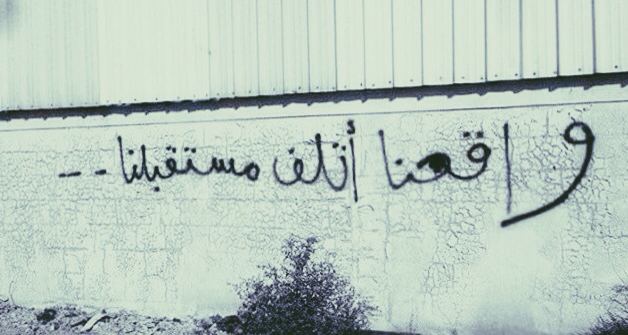 واقعنا أتلف مستقبلنا --